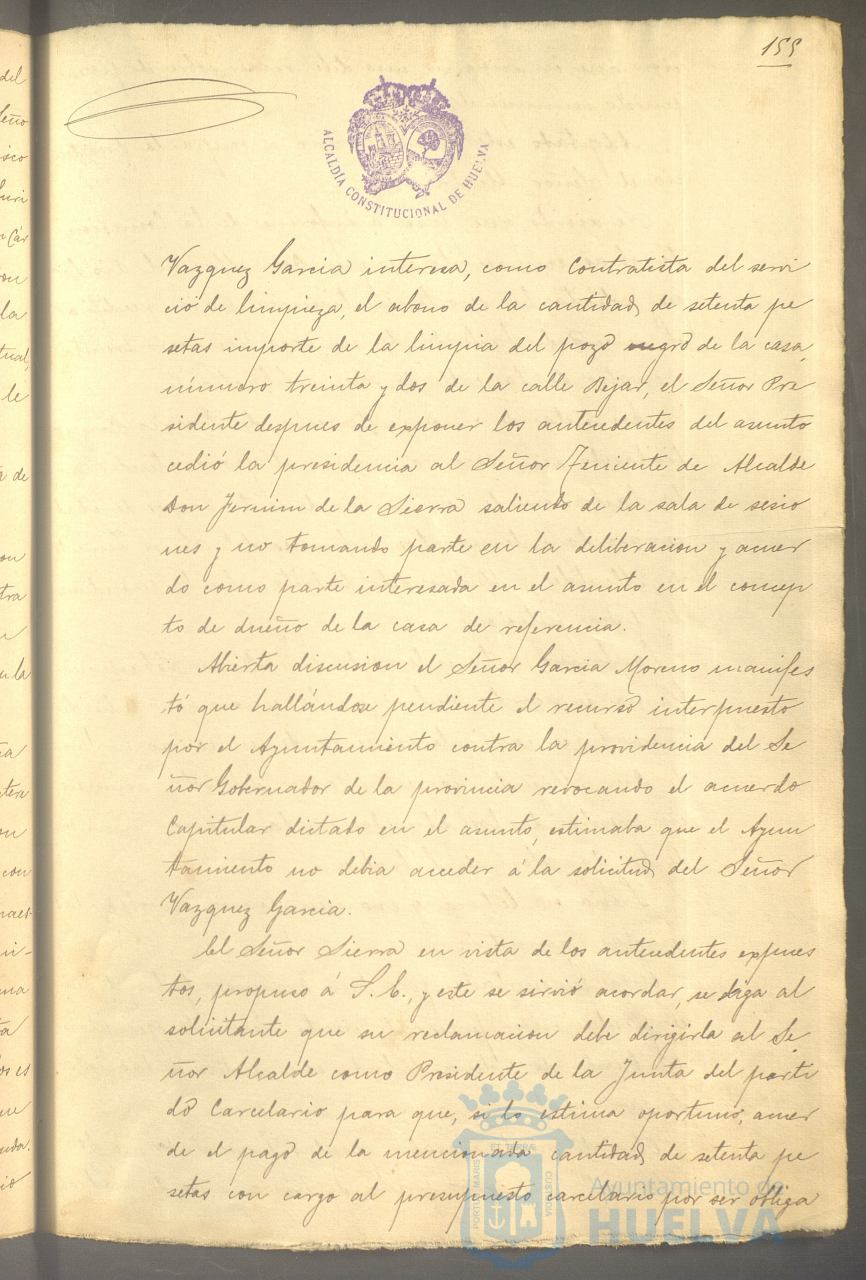 155
ALCALDÍA CONSTITUCIONAL DE HUELVA
Vazquez Garcia interesa, como Contratista del servi
cio de limpieza, el abono de la cantidad de setenta pe
setas importe de la limpia del pozo negro de la casa
número treinta y dos de la calle Bejar, el Señor Pre
sidente despues de exponer los antecedentes del asunto
cedió la presidencia al Señor Teniente de Alcalde
Don de la Sierra saliendo de la sala de sesio
nes y no tomando parte en la deliberacion y acuer
do como parte interesada en el asunto en el concep
to de dueño de la casa de referencia.
Abierta discusion el Señor Garcia Moreno manifes
tó que hallándose pendiente el recurso interpuesto
por el Ayuntamiento contra la providencia del Se
ñor Gobernador de la provincia revocando el acuerdo
Capitular dictado en el asunto, estimaba que el Ayun
tamiento no debia acceder á la solicitud del Señor
Vazquez Garcia.
El Señor Sierra en vista de los antecedentes expues
tos, propuso á S. E., y este se sirvió acordar, se diga al
solicitante que su reclamacion debe dirigirla al Se
ñor Alcalde como Presidente de la Junta del parti
do Carcelario para que, si lo estima oportuno, acuer
de el pago de la mencionada cantidad de setenta pe
setas con cargo al presupuesto carcelario por ser obliga
PORTUS MARIS ET TERRÆ CUSTODIA
Ayuntamiento de
HUELVA